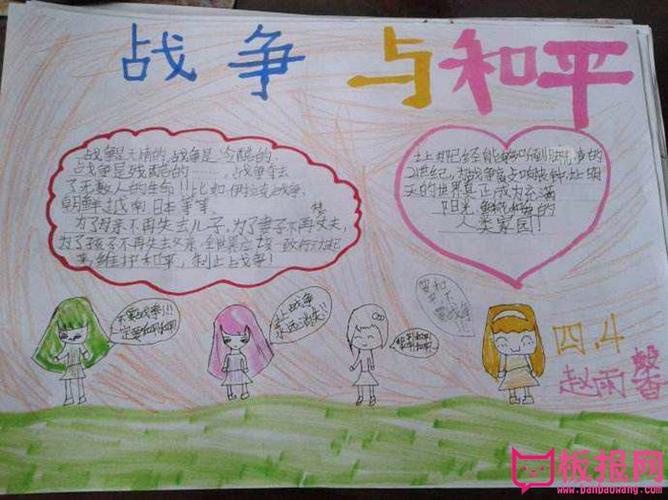 战争与和平
战争是无情的,战争是冷酷的.
战争是残酷的……,战争夺去
了无数人的生命!!比如伊拉克战争,
朝鲜越南日本等等.
为了母亲不再失去儿子,为了妻子不再丈夫,
为了孩子不再失去父亲,全世界应该一致行动起
来,维护和平,制止战争!
让
21世纪,
天的世界真正成为充满
阳光鲜花 的
人类家园!
不要战争!!
一定要
让战争
永远消失!!
要和
平,不
要战争
四.4
赵雨馨
板报网
www.banbaowang.com